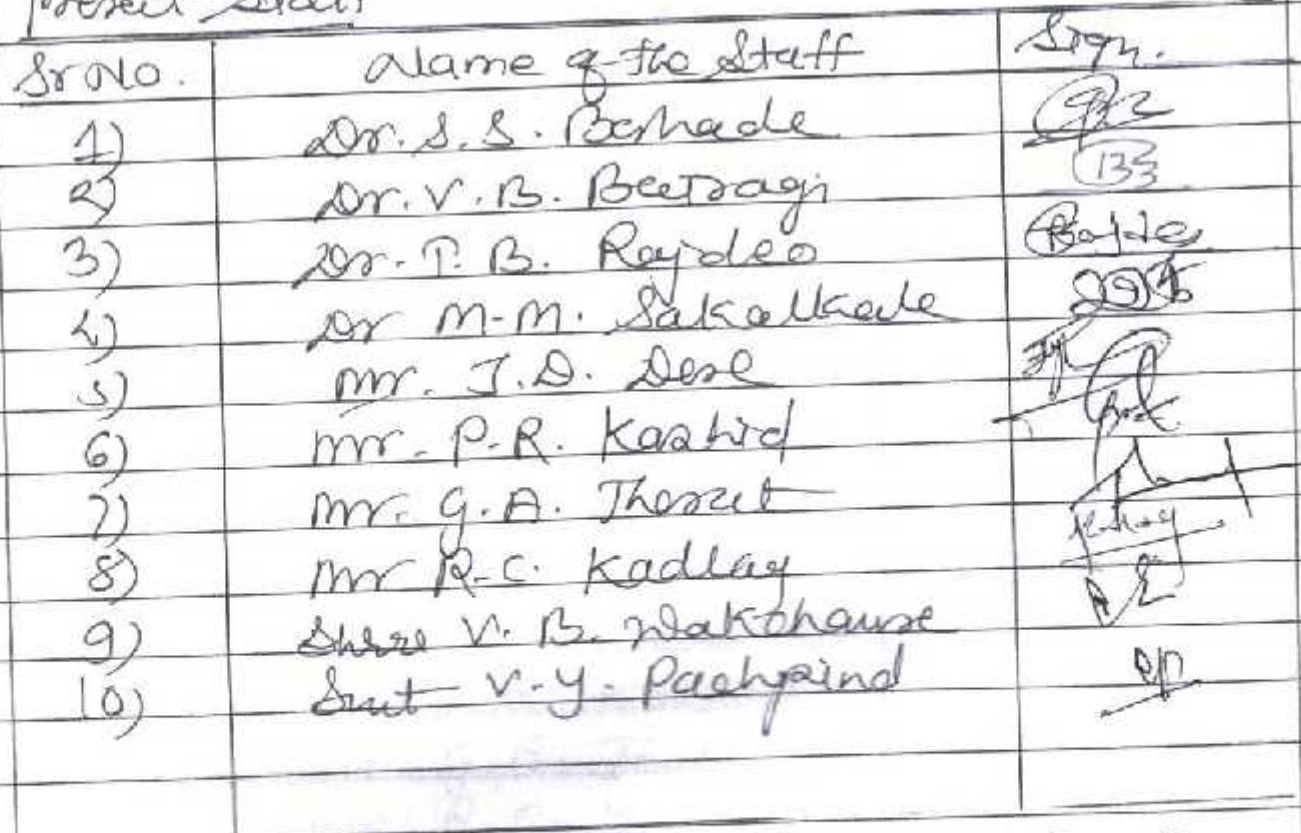 Present Staff
Sr No. Name of the Staff Sign.
1) Dr. S. S. Bomade
2) Dr. V. B. Bairagi
3) Dr. P. B. Rajdeo
4) Dr M.M. Sakalkale
5) Mr. J.D. Desl
6) Mr. P.R. Kashid
7) Mr. G.A. Thorat
8) Mr R.C. Kadlag
9) Shree V. B. Wakchaure
10) Smt V.Y. Pachpind